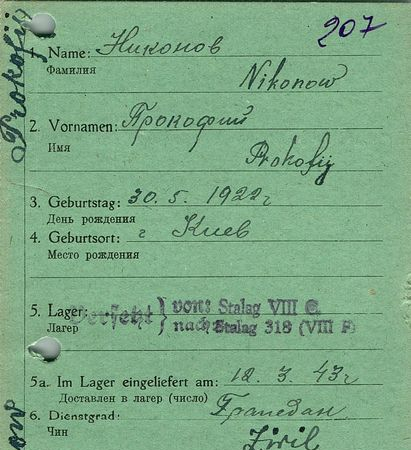 207
Prokofij
1. Name: Никонов
Фамилия
Nikonow
2. Vornamen: Прокофий
Имя
Prokofij
3. Geburtstag: 30. 5. 1922г
День рождения
4. Geburtsort: г Киев
Место рождения
5. Lager: Versetzt } von: Stalag VIII C.
Лагер nach Stalag 318 (VIII F)
5a. Im Lager eingeliefert am: 12. 3. 43г
Доставлен в лагер (число)
6. Dienstgrad: Граждан
Чин
Zivil
ow